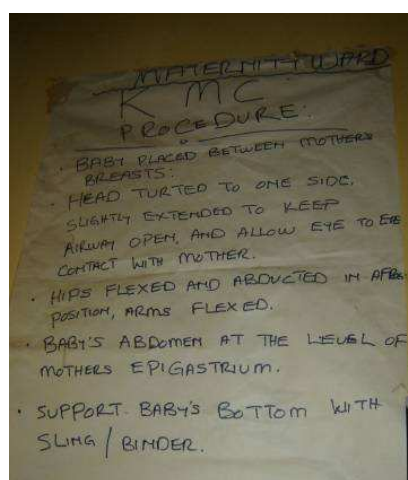 MATERNITY WARD
KMC
PROCEDURE:
· BABY PLACED BETWEEN MOTHERS
BREASTS:
· HEAD TURTED TO ONE SIDE,
SLIGHTLY EXTENDED TO KEEP
AIRWAY OPEN, AND ALLOW EYE TO EYE
CONTACT WITH MOTHER.
· HIPS FLEXED AND ABDUCTED IN A
POSITION, ARMS FLEXED.
· BABY'S ABDOMEN AT THE LEVEL OF
MOTHERS EPIGASTRIUM.
· SUPPORT BABY'S BOTTOM WITH
SLING / BINDER.